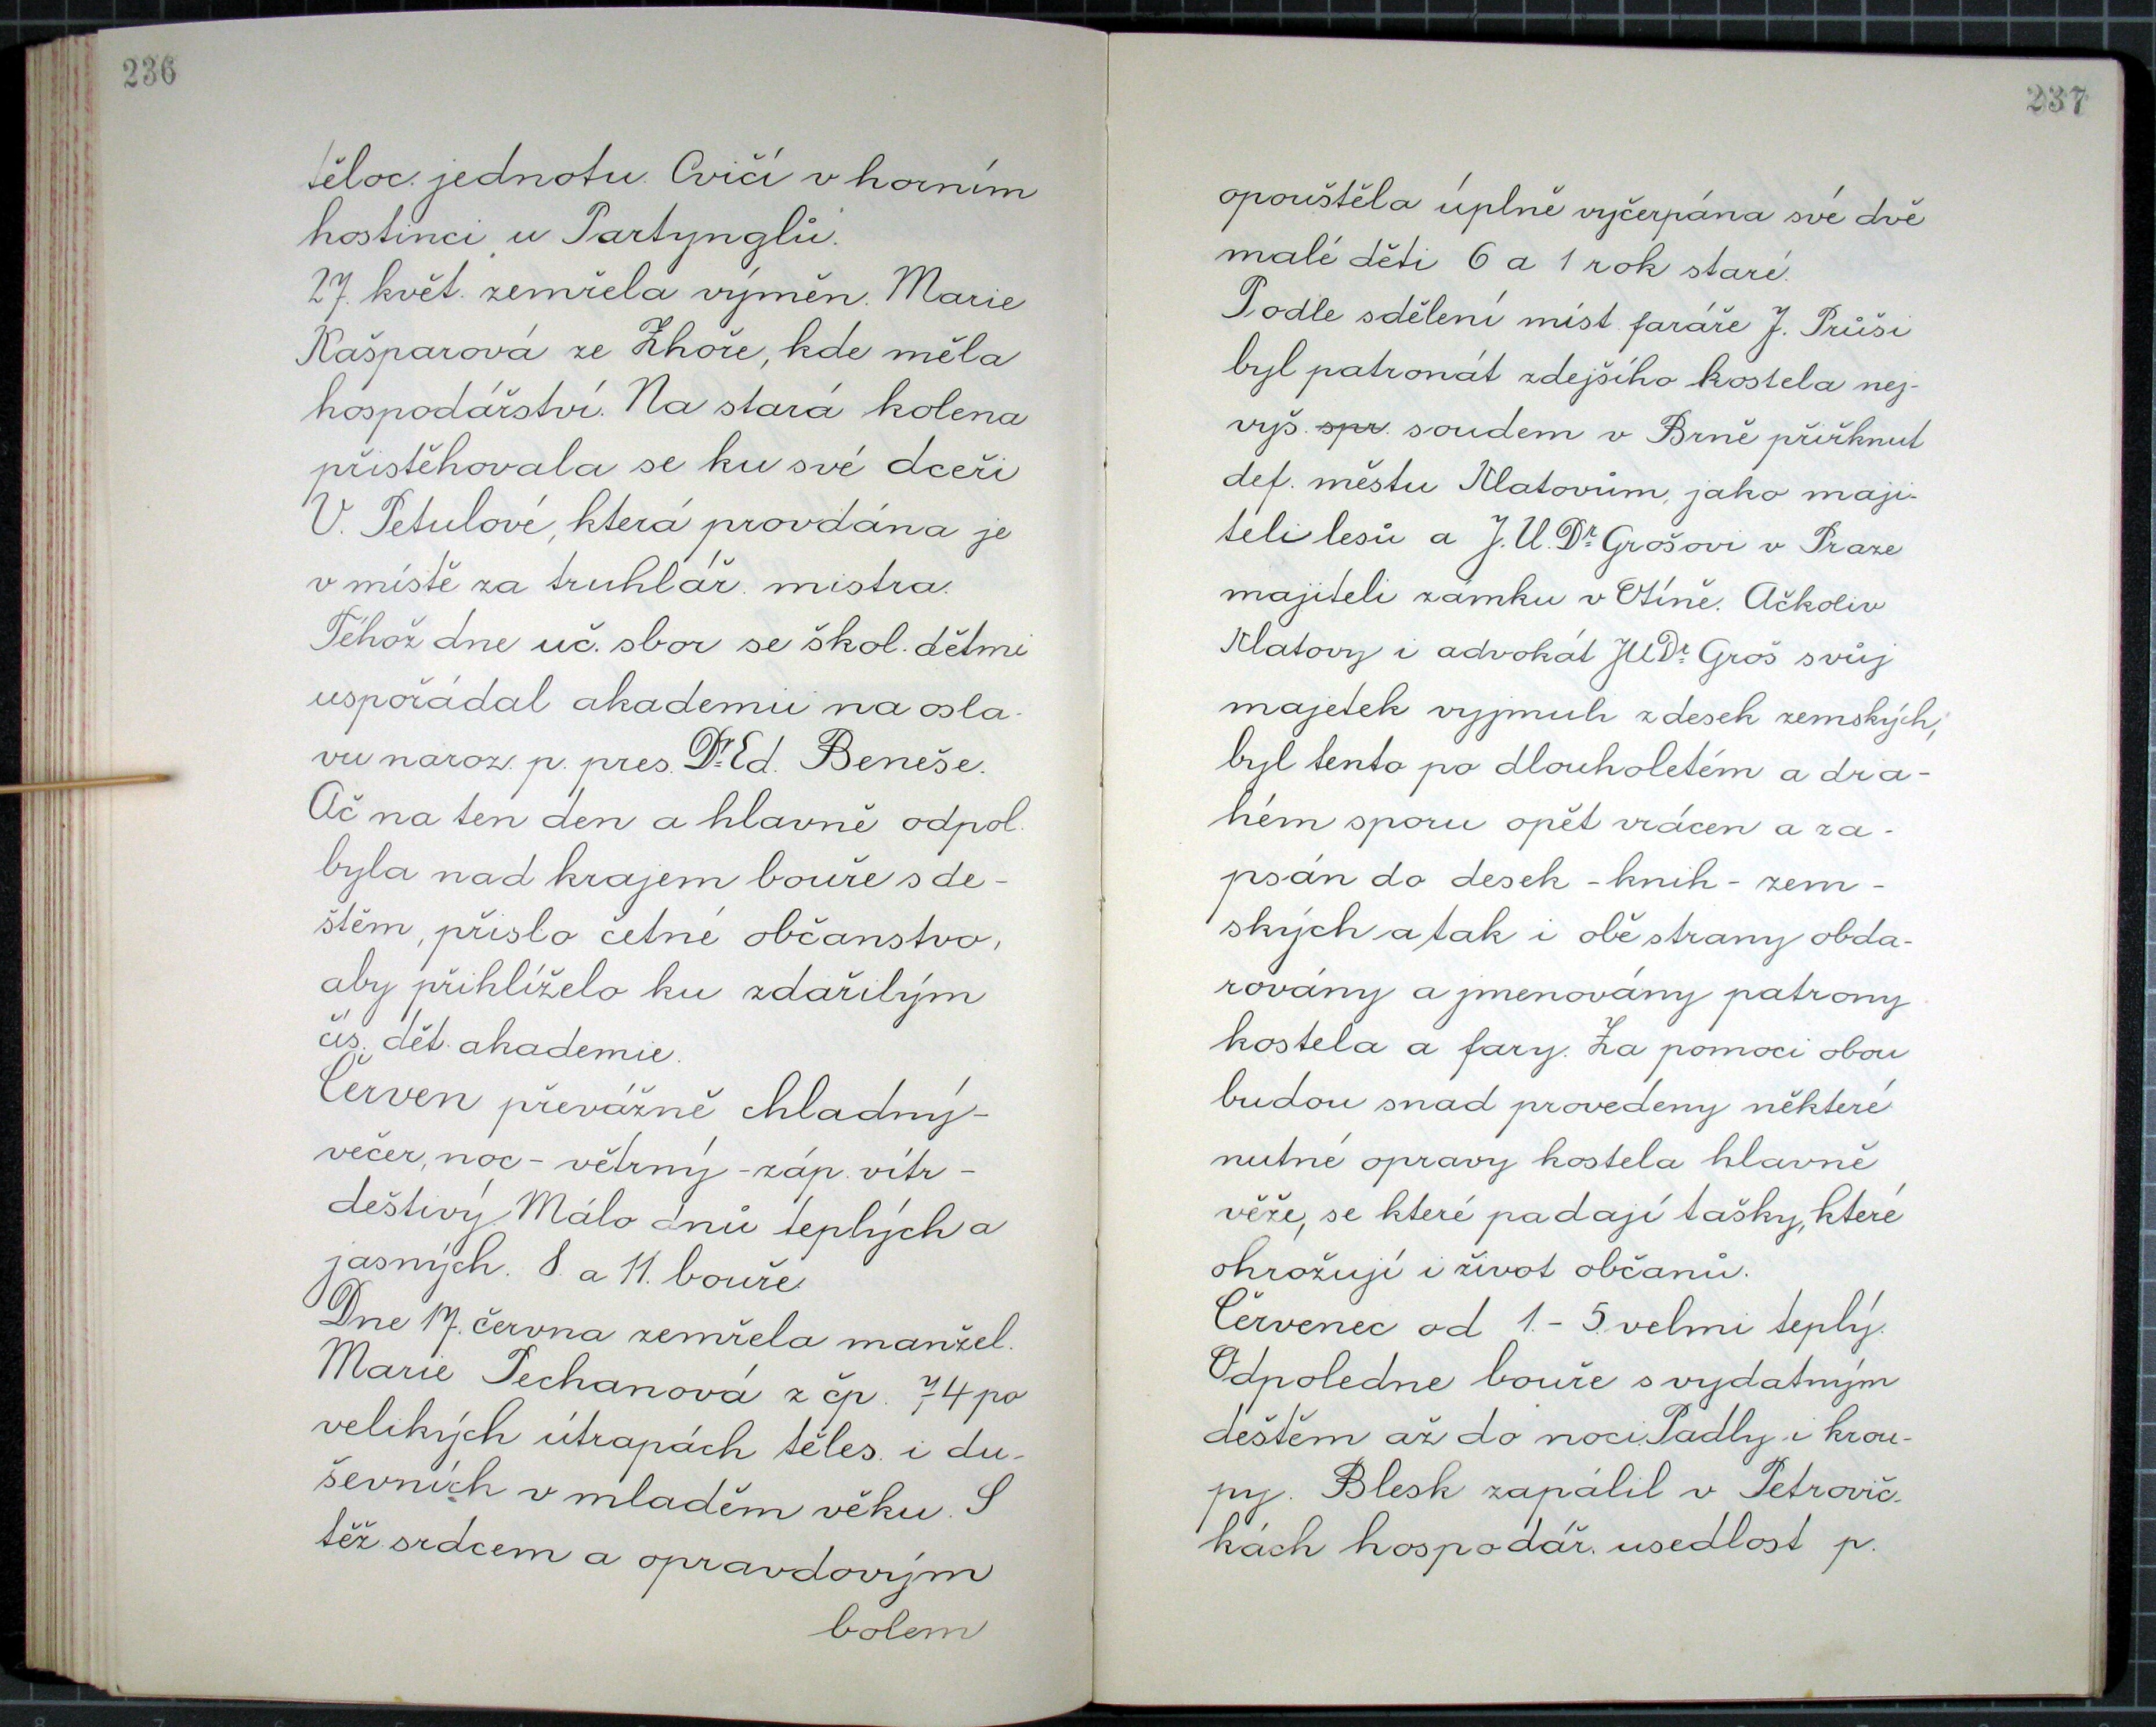 236
těloc. jednotu. Cvičí v horním
hostinci u Partynglů.
27. květ. zemřela výměn. Marie
Kašparová ze Zhoře, kde měla
hospodářství. Na stará kolena
přistěhovala se ku své dceři
V. Petulové, která provdána je
v místě za truhlář. mistra.
Téhož dne uč. sbor se škol. dětmi
uspořádal akademii na osla-
vu naroz. p. pres. Dr. Ed. Beneše.
Ač na ten den a hlavně odpol.
byla nad krajem bouře s de-
štěm, přislo četné občanstvo,
aby přihlíželo ku zdařilým
čís. dět. akademie.
Červen převážně chladný-
večer, noc - větrný - záp. vítr -
deštivý. Málo dnů teplých a
jasných. 8. a 11. bouře.
Dne 17. června zemřela manžel.
Marie Pechanová z čp. 74 po
velikých útrapách těles. i du-
ševních v mladém věku. S
těž. srdcem a opravdovým
bolem
237
opouštěla úplně vyčerpána své dvě
malé děti 6 a 1 rok staré.
Podle sdělení míst. faráře J. Průši
byl patronát zdejšího kostela nej-
vyš. spr. soudem v Brně přiřknut
def. městu Klatovům, jako maji-
teli lesů a J. U. Dr. Grošovi v Praze
majiteli zámku v Otíně. Ačkoliv
Klatovy i advokát JUDr. Groš svůj
majetek vyjmuli z desek zemských,
byl tento po dlouholetém a dra-
hém sporu opět vrácen a za-
psán do desek - knih - zem-
ských a tak i obě strany obda-
rovány a jmenovány patrony
kostela a fary. Za pomoci obou
budou snad provedeny některé
nutné opravy kostela hlavně
věže, se které padají tašky, které
ohrožují i život občanů.
Červenec od 1. - 5. velmi teplý.
Odpoledne bouře s vydatným
deštěm až do noci. Padly i krou-
py. Blesk zapálil v Petrovič-
kách hospodář. usedlost p.